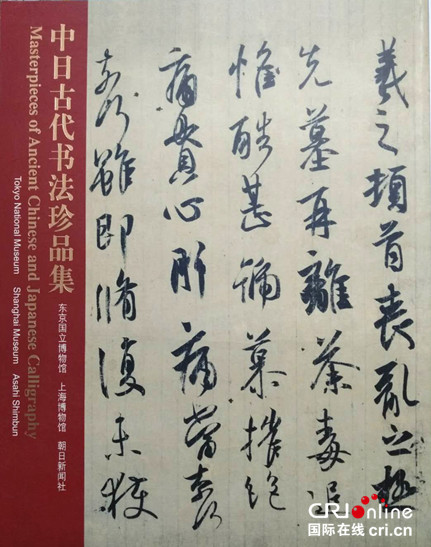 中日古代书法珍品集
Masterpieces of Ancient Chinese and Japanese Calligraphy
东京国立博物馆 上海博物馆 朝日新闻社
Tokyo National Museum Shanghai Museum Asahi Shimbun
羲之頓首喪亂之極
先墓再離荼毒追
惟酷甚號慕摧絶
痛貫心肝痛當奈何
奈何雖即脩復未獲
CRIonline
国际在线 cri.cn